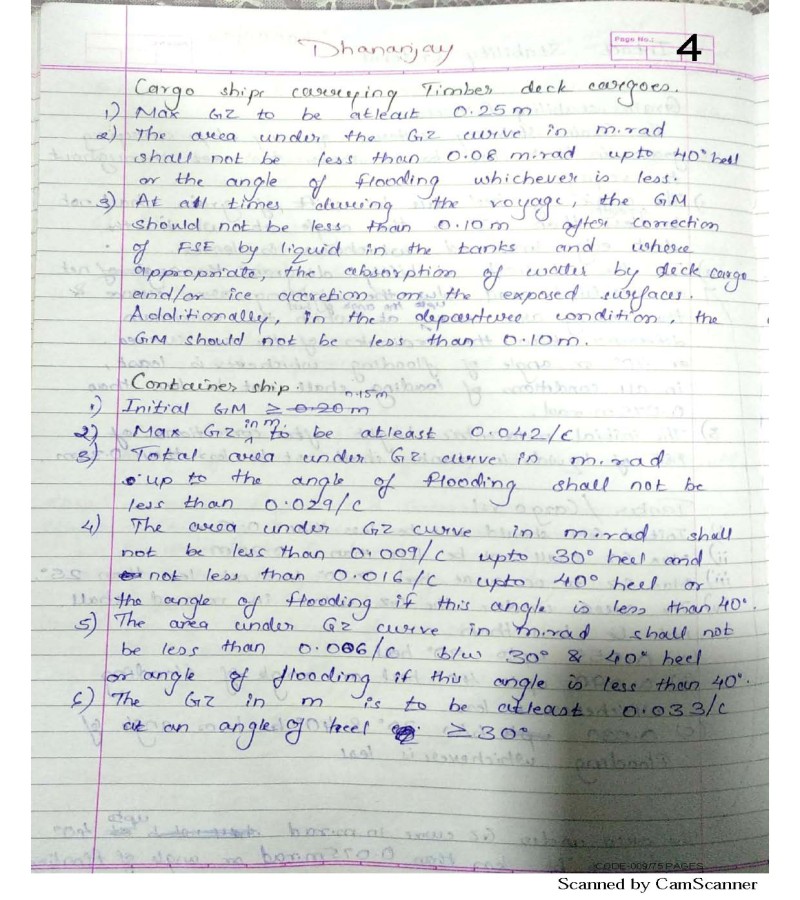 Page No.: 4
Dhananjay
Cargo ships carrying Timber deck cargoes.
1) Max GZ to be atleast 0.25m
2) The area under the GZ curve in m.rad
shall not be less than 0.08 m.rad upto 40° heel
or the angle of flooding whichever is less.
3) At all times during the voyage, the GM
should not be less than 0.10m after correction
of FSE by liquid in the tanks and where
appropriate, the absorption of water by deck cargo
and/or ice accretion on the exposed surfaces.
Additionally, in the departure condition, the
GM should not be less than 0.10m.
Container ship.
0.15m
1) Initial GM ≥ 0.20m
2) Max GZ in m to be atleast 0.042/C
3) Total area under GZ curve in m.rad
up to the angle of flooding shall not be
less than 0.029/C
4) The area under GZ curve in m.rad shall
not be less than 0.009/C upto 30° heel and
not less than 0.016/C upto 40° heel or
the angle of flooding if this angle is less than 40°.
5) The area under GZ curve in m.rad shall not
be less than 0.006/C b/w 30° & 40° heel
or angle of flooding if this angle is less than 40°.
6) The GZ in m is to be atleast 0.033/C
at an angle of heel ≥ 30°
CODE-009/75 PAGES
Scanned by CamScanner